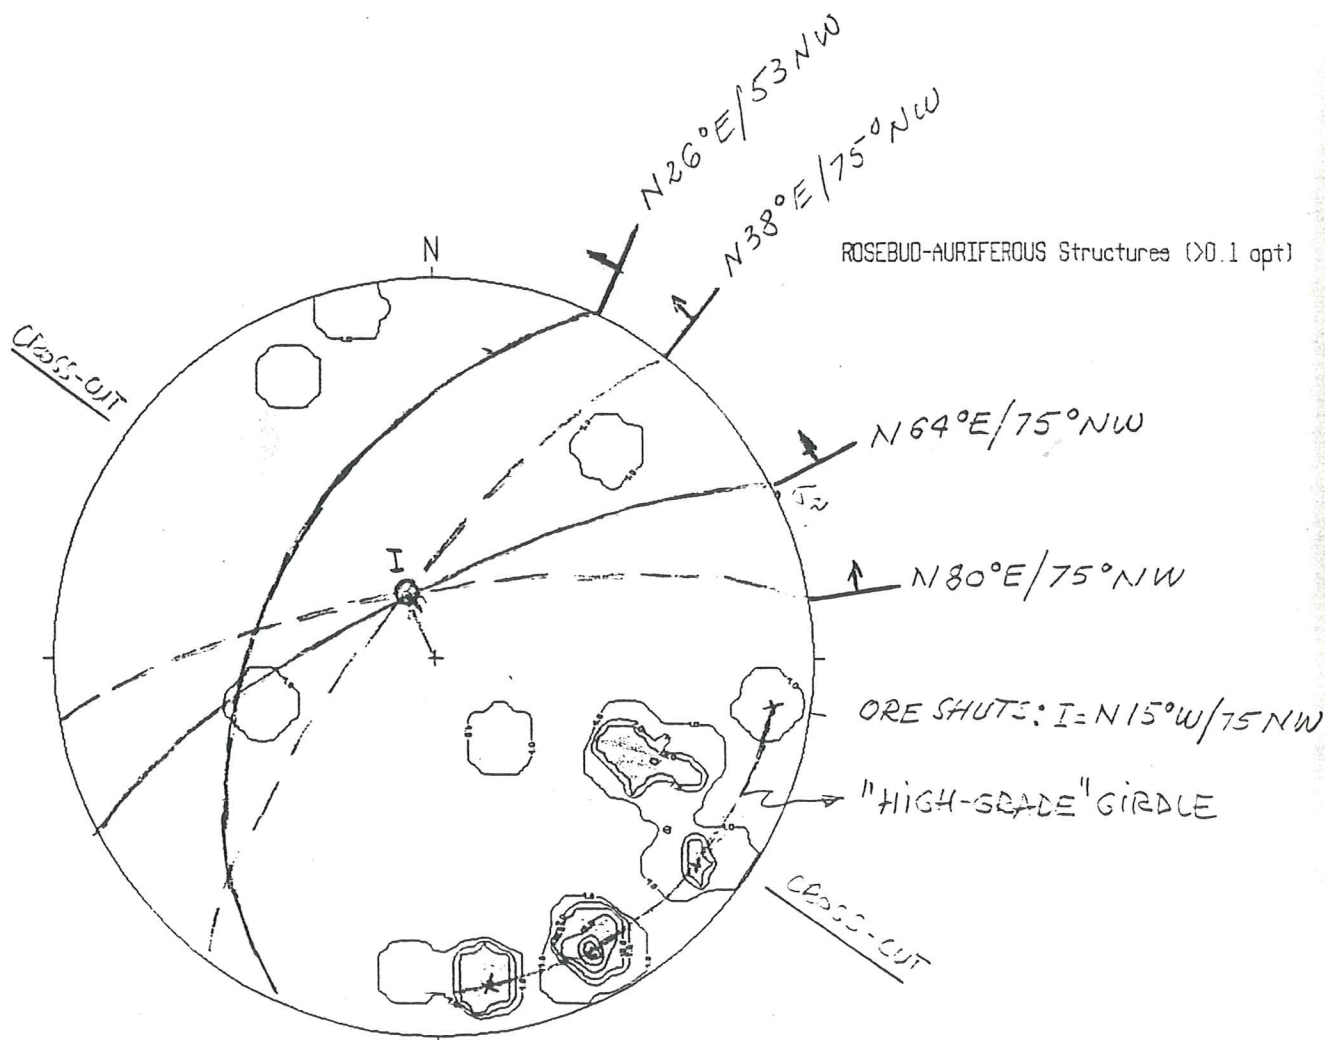 N26°E/53NW
N38°E/75°NW
ROSEBUD-AURIFEROUS Structures (>0.1 opt)
N
CROSS-CUT
N64°E/75°NW
σ2
I
N80°E/75°NW
ORE SHUTS: I=N15°W/75NW
"HIGH-GRADE" GIRDLE
CROSS-CUT